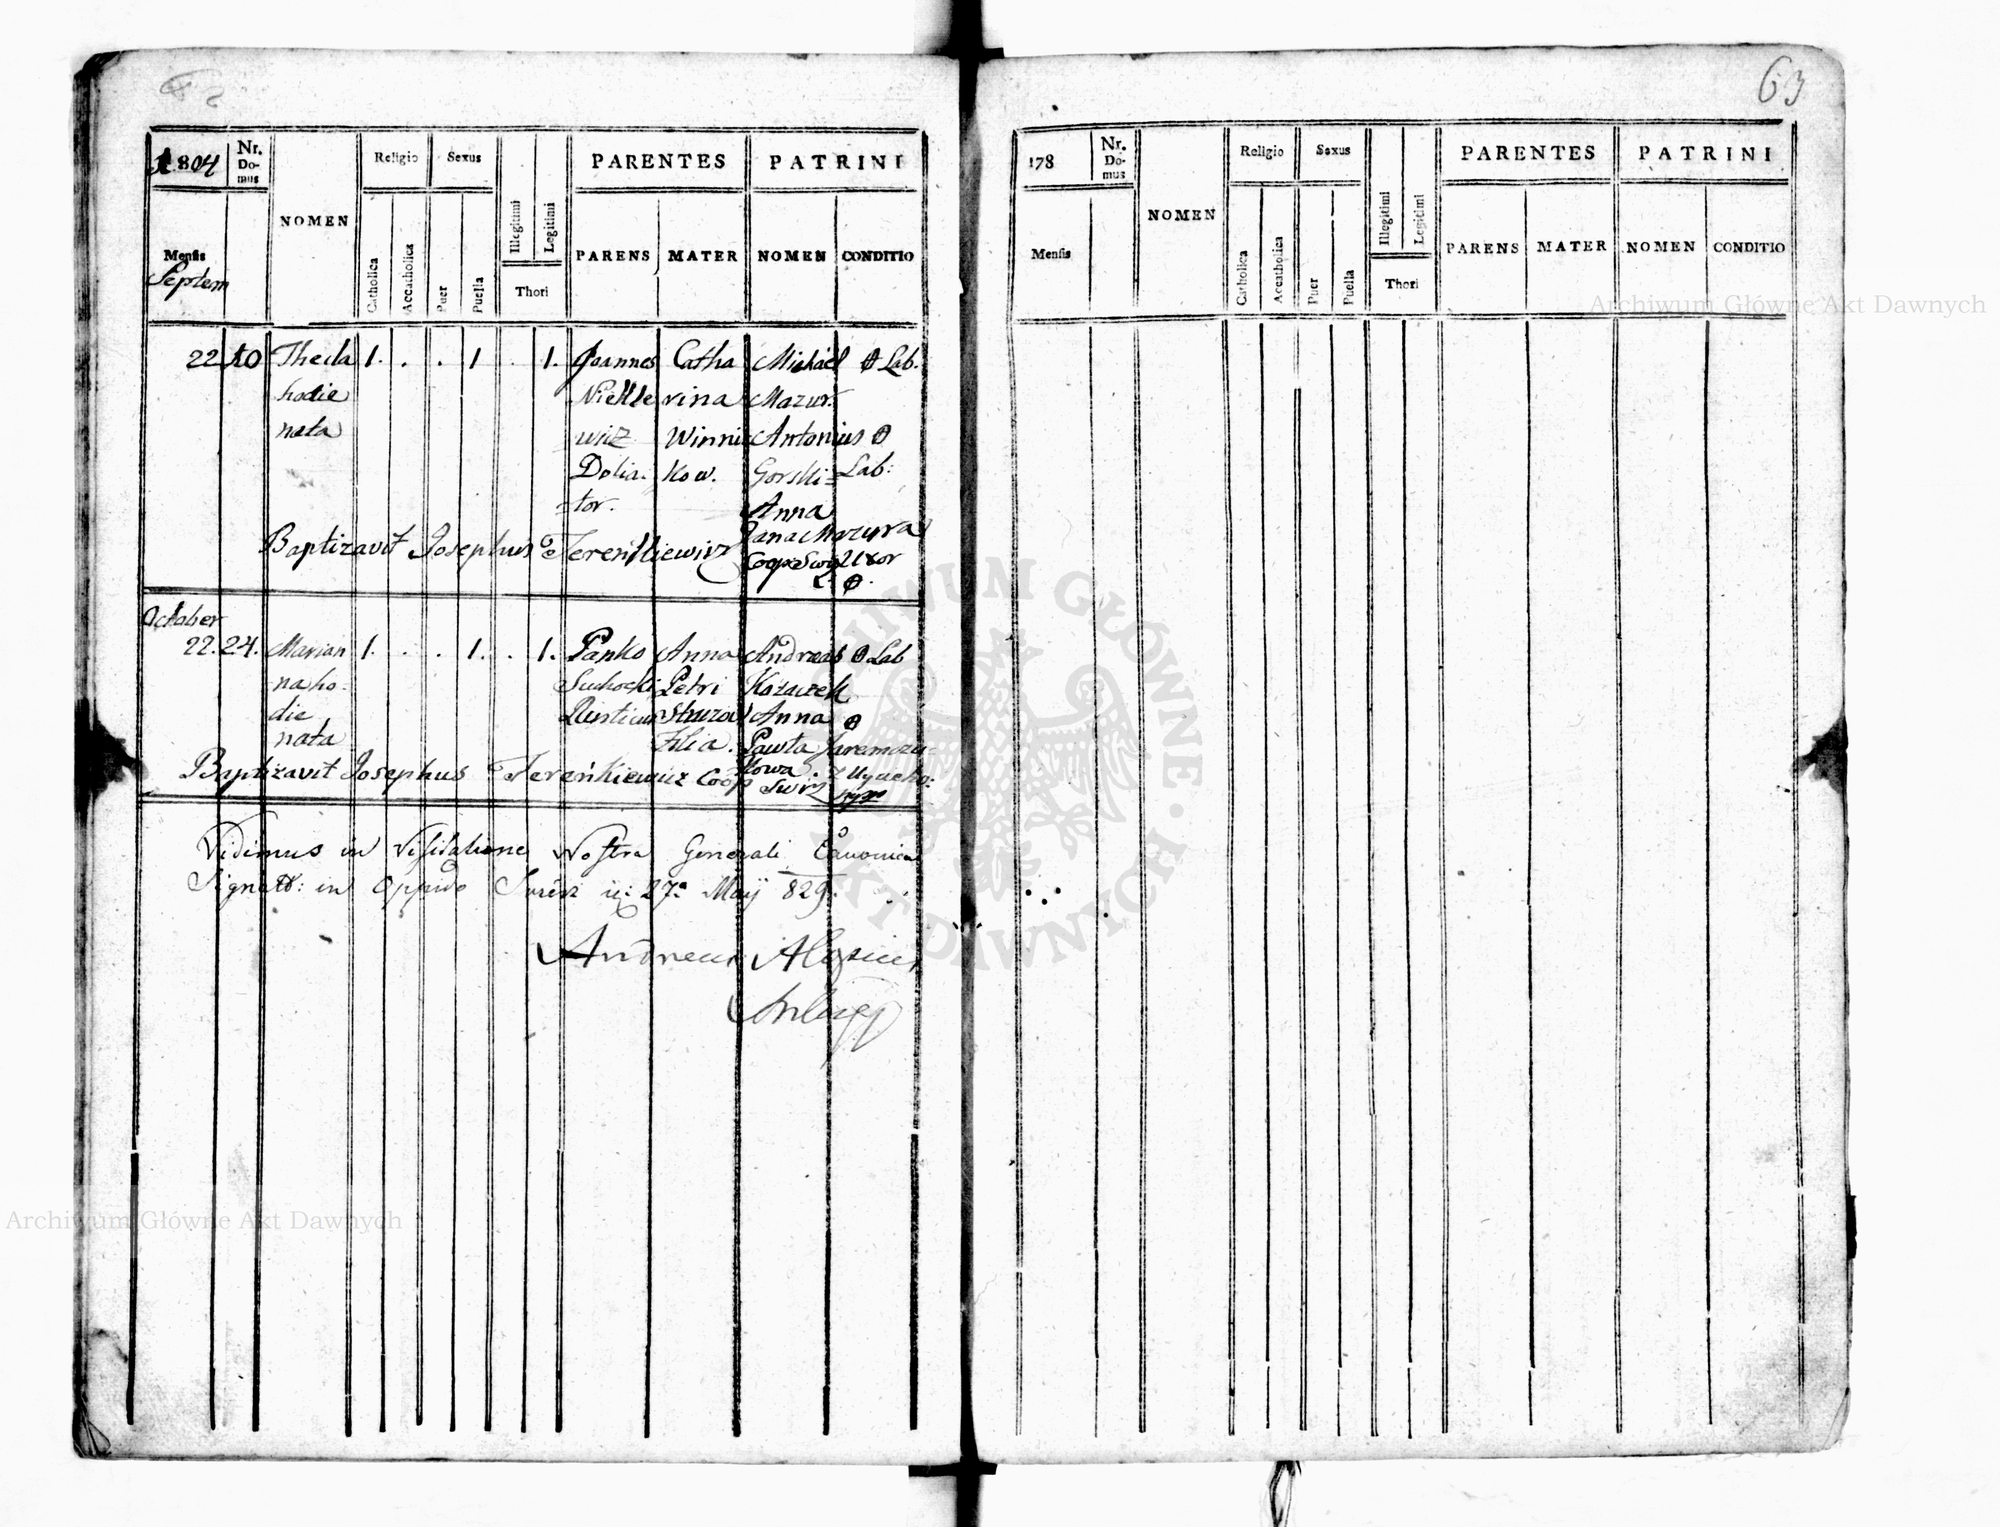 63
1804
Nr. Domus
NOMEN
Religio
Sexus
PARENTES
PATRINI
Mensis
Septem
Catholica
Accatholica
Puer
Puella
Illegitimi
Legitimi
Thori
PARENS
MATER
NOMEN
CONDITIO
22 10 Thecla 1. . . 1 . 1. Joannes Catha Michael Lab.
hodie rina Mazur.
nata wicz Winni Antonius
Dolia: kow. Gorski= Lab:
=tor. Anna
Baptizavit Josephus Tereńkiewicz Jana Mazura
Coop Swirz Uxor
October
22. 24. Marian 1. . . 1. . 1. Panko Anna Andreas Lab
na ho: Suchocki Petri Kozaczek
die Rusticus Anna
nata Filia. Pawła Jaremczu=
Baptizavit Josephus Tereńkiewicz Coop kowa.
Swirz
Vidimus in Visitatione Nostra Generali Canonica
Signatt: in Oppido 27a Maij 829.
Andreas Aloysius
178
Nr. Domus
NOMEN
Religio
Sexus
PARENTES
PATRINI
Mensis
Catholica
Accatholica
Puer
Puella
Illegitimi
Legitimi
Thori
PARENS
MATER
NOMEN
CONDITIO
Archiwum Główne Akt Dawnych
ARCHIWUM GŁÓWNE AKT DAWNYCH
Archiwum Główne Akt Dawnych